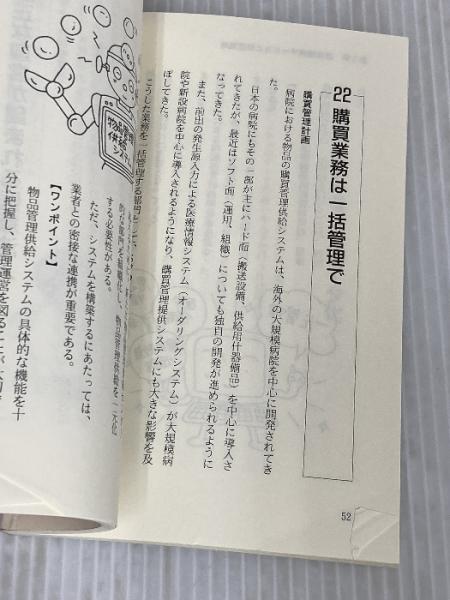 22 購買業務は一括管理で
購買管理計画
病院における物品の購買管理供給システムは、海外の大規模病院を中心に開発されてき
た。
日本の病院にもその一部が主にハード面（搬送設備、供給用什器備品）を中心に導入さ
れてきたが、最近はソフト面（運用、組織）についても独自の開発が進められるように
なってきた。
また、前出の発生源入力による医療情報システム（オーダリングシステム）が大規模病
院や新設病院を中心に導入されるようになり、購買管理提供システムにも大きな影響を及
ぼしてきた。
こうした業務を一括管理する部門として、
的な部門を組織化し、物品管理供給を一元化
する必要性がある。
ただ、システムを構築するにあたっては、
業者との密接な連携が重要である。
【ワンポイント】
物品管理供給システムの具体的な機能を十
分に把握し、管理運営を図ることが大切
物品管理
供給
システム
52